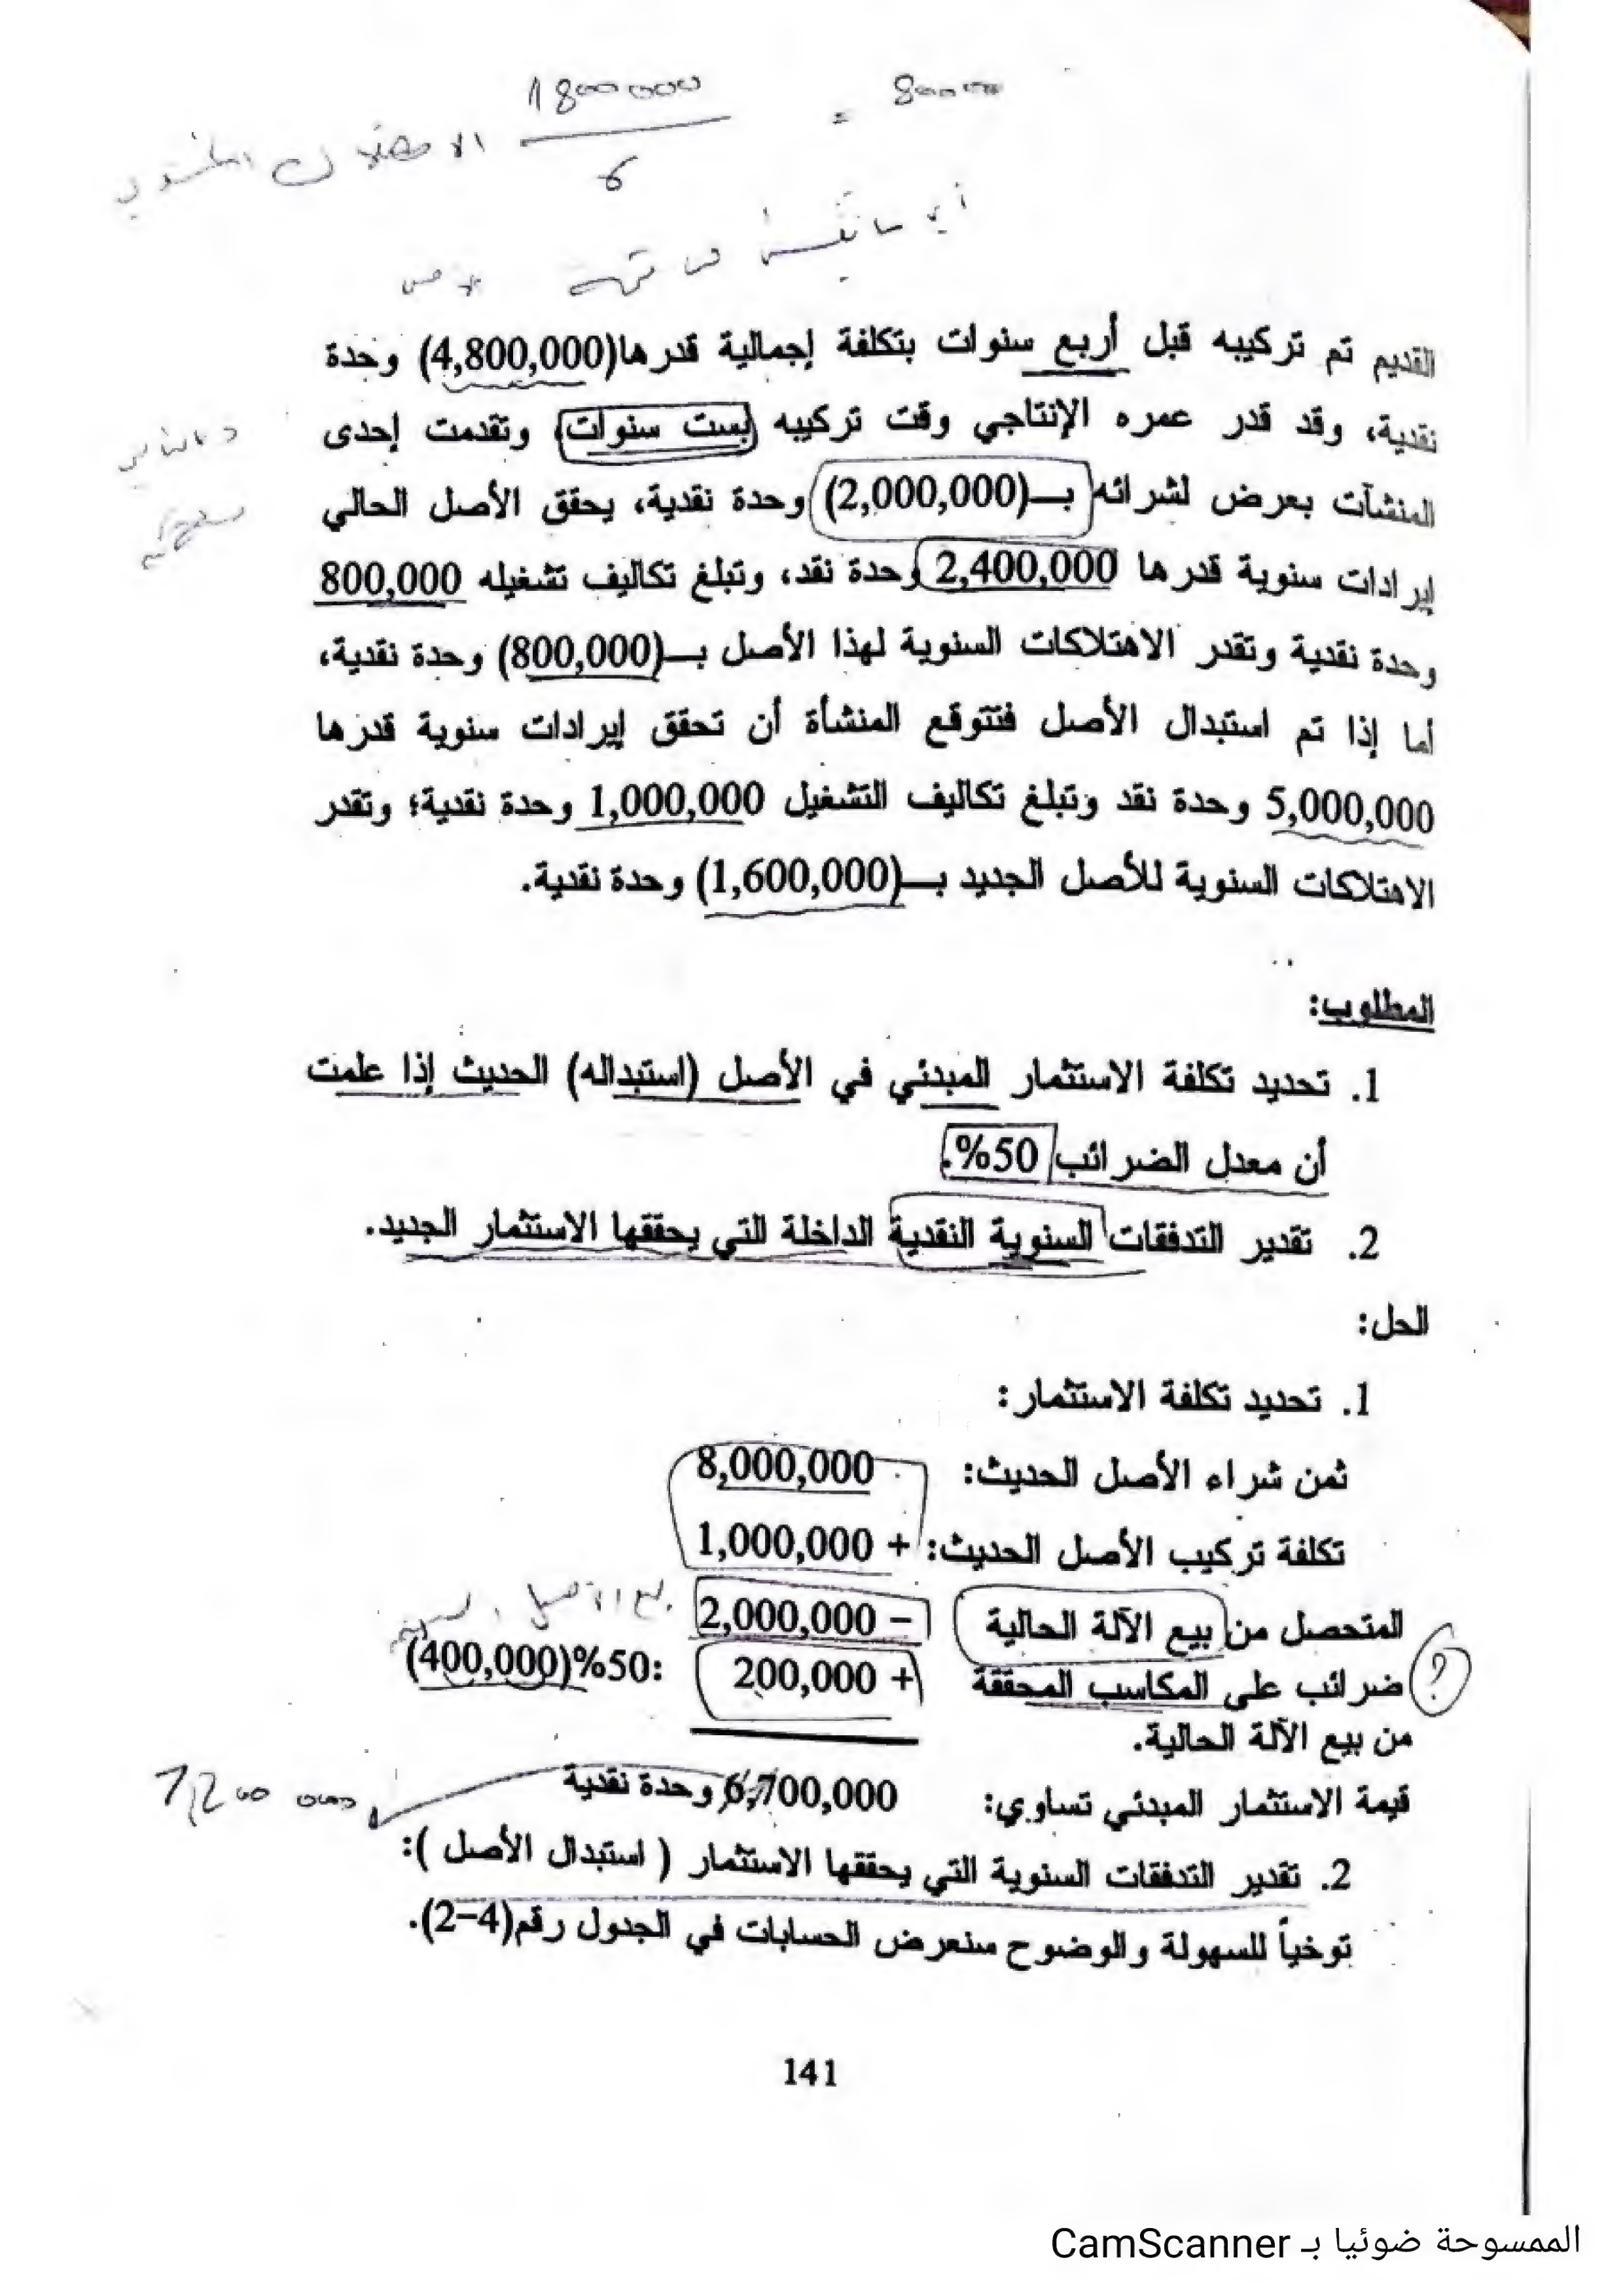 4800000
6
= 800000
القديم تم تركيبه قبل أربع سنوات بتكلفة إجمالية قدرها(4,800,000) وحدة
نقدية، وقد قدر عمره الإنتاجي وقت تركيبه بست سنوات، وتقدمت إحدى
المنشآت بعرض لشرائه بـ(2,000,000) وحدة نقدية، يحقق الأصل الحالي
إيرادات سنوية قدرها 2,400,000 وحدة نقد، وتبلغ تكاليف تشغيله 800,000
وحدة نقدية وتقدر الاهتلاكات السنوية لهذا الأصل بـ(800,000) وحدة نقدية،
أما إذا تم استبدال الأصل فتتوقع المنشأة أن تحقق إيرادات سنوية قدرها
5,000,000 وحدة نقد وتبلغ تكاليف التشغيل 1,000,000 وحدة نقدية؛ وتقدر
الاهتلاكات السنوية للأصل الجديد بـ(1,600,000) وحدة نقدية.
المطلوب:
1. تحديد تكلفة الاستثمار المبدئي في الأصل (استبداله) الحديث إذا علمت
أن معدل الضرائب 50%.
2. تقدير التدفقات السنوية النقدية الداخلة التي يحققها الاستثمار الجديد.
الحل:
1. تحديد تكلفة الاستثمار:
ثمن شراء الأصل الحديث: 8,000,000
تكلفة تركيب الأصل الحديث: + 1,000,000
المتحصل من بيع الآلة الحالية − 2,000,000
ضرائب على المكاسب المحققة + 200,000 :50%(400,000)
من بيع الآلة الحالية.
قيمة الاستثمار المبدئي تساوي: 6,700,000 وحدة نقدية
7,200 000
2. تقدير التدفقات السنوية التي يحققها الاستثمار ( استبدال الأصل ):
توخياً للسهولة والوضوح سنعرض الحسابات في الجدول رقم(4-2).
141
الممسوحة ضوئيا بـ CamScanner